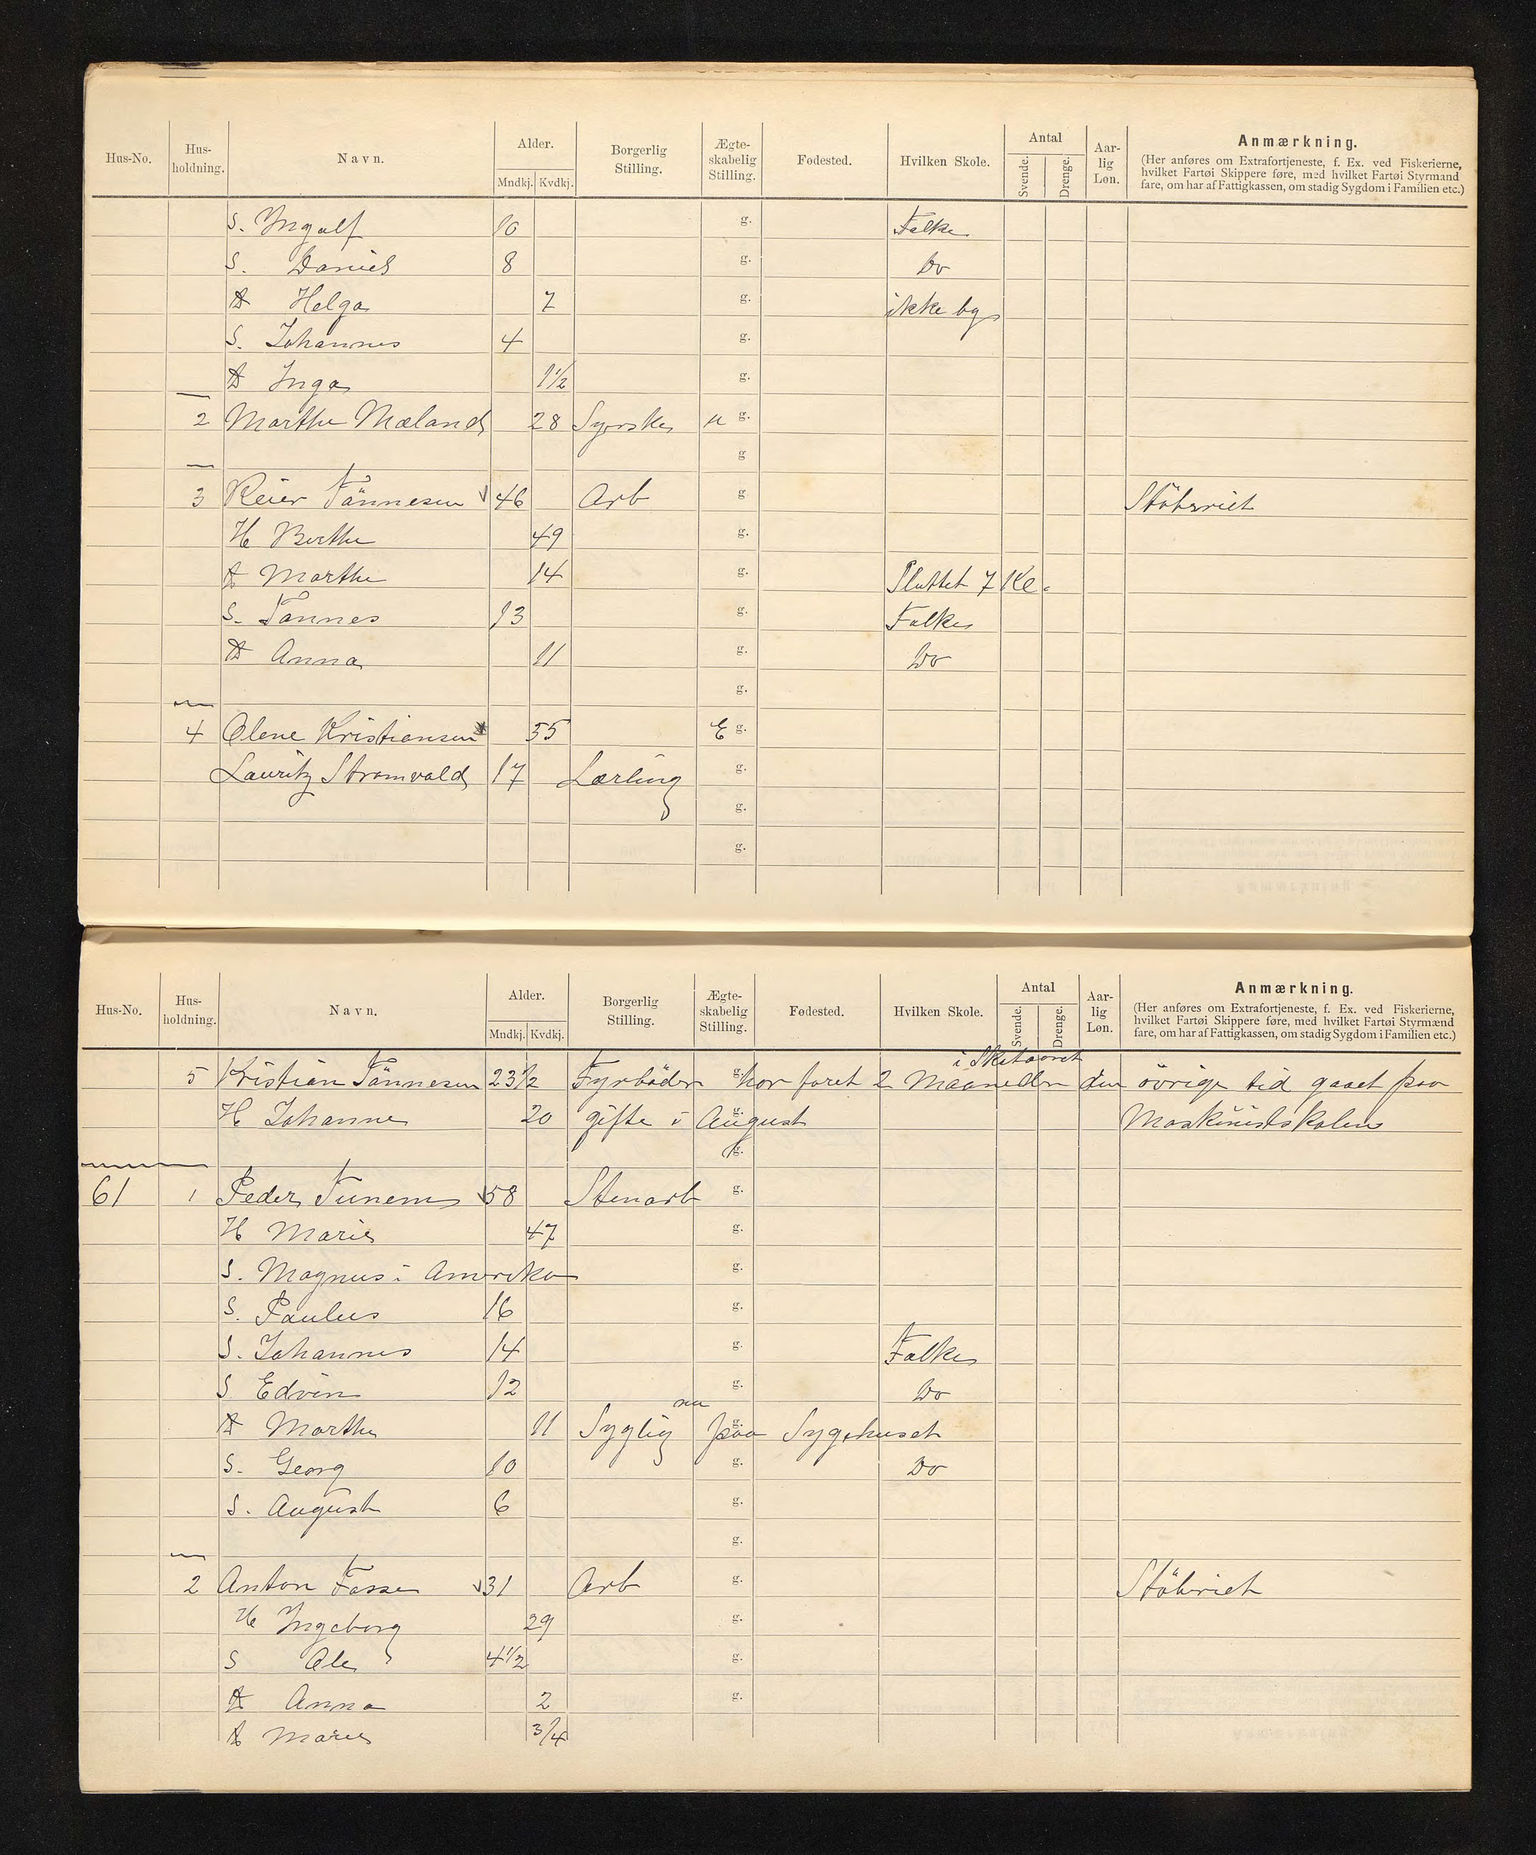 Hus-No. Hus-holdning. Navn. Alder. Mndkj. Kvdkj. Borgerlig Stilling. Ægte-skabelig Stilling. Fødested. Hvilken Skole. Antal Svende. Drenge. Aar-lig Løn. Anmærkning.
(Her anføres om Extrafortjeneste, f. Ex. ved Fiskerierne, hvilket Fartøi Skippere føre, med hvilket Fartøi Styrmænd fare, om har af Fattigkassen, om stadig Sygdom i Familien etc.)
S. Ingolf 10 g. Folke
S. Daniel 8 g. Do
D Helga 7 g. ikke beg
S. Johannes 4 g.
D Inga 1 1/2 g.
2 Marthe Mæland 28 Syerske u g.
g
3 Reier Tönnesen 46 Arb g Stöberiet
H Berthe 49 g.
D Marthe 14 g. Sluttet 7 Kl.
S. Tönnes 13 g. Folke
D Anna 11 g. Do
g.
4 Olene Kristiansen 55 E g.
Lauritz Stromvold 17 Lærling g.
g.
g.
Hus-No. Hus-holdning. Navn. Alder. Mndkj. Kvdkj. Borgerlig Stilling. Ægte-skabelig Stilling. Fødested. Hvilken Skole. Antal Svende. Drenge. Aar-lig Løn. Anmærkning.
(Her anføres om Extrafortjeneste, f. Ex. ved Fiskerierne, hvilket Fartøi Skippere føre, med hvilket Fartøi Styrmænd fare, om har af Fattigkassen, om stadig Sygdom i Familien etc.)
i Skataaret
5 Kristian Tönnesen 23 1/2 Fyrböder g. har faret 2 Maaneder den övrige tid gaaet paa
H Johanne 20 gifte i August g. Maskinistskolen
g.
61 1 Peder Tunem 58 Stenarb g.
H Marie 47 g.
S. Magnus i Amerika g.
S. Paulus 16 g.
S. Johannes 14 g. Folke
S Edvin 12 g. Do
nu
D Marthe 11 Syglig paa g. Sygehuset
S. Georg 10 g. Do
S. August 6 g.
g.
2 Anton Fosse 31 Arb g. Stöberiet
H Ingeborg 29 g.
S Ole 4 1/2 g.
D Anna 2 g.
D Marie 3/4